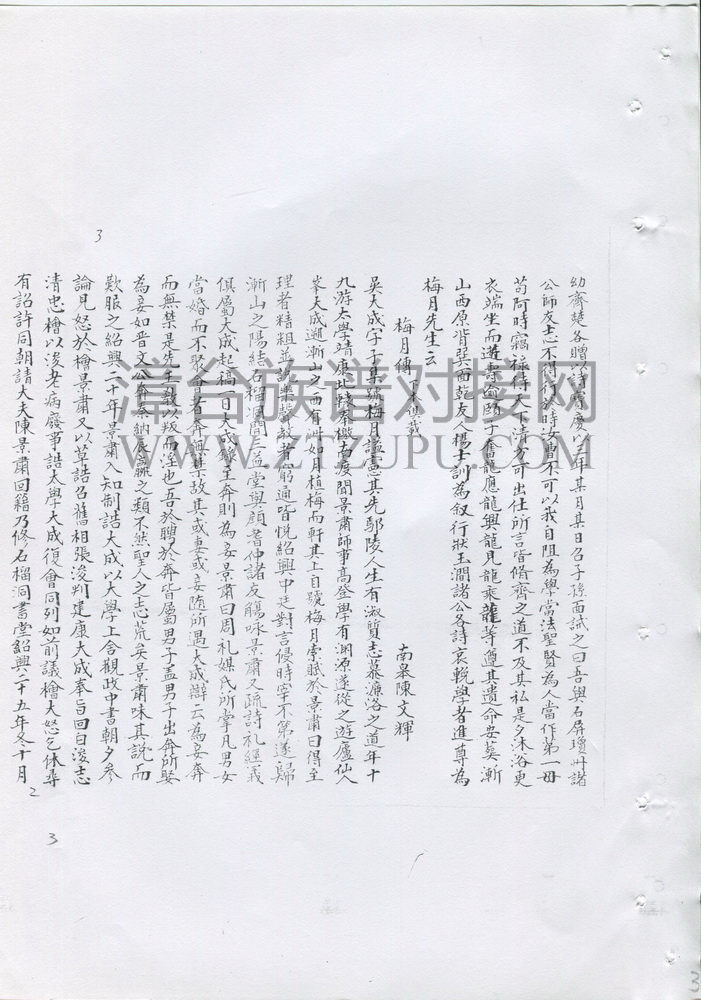 幼齋楚各贈以行寶慶以三年某月某日召子孫面誡之曰吾與石屏瓊州諸
公師友志不得行於時汝曹不可以我自阻為學當法聖賢為人當作第一毋
苟阿時竊祿待天下清方可出任所言皆脩齊之道不及其私是夕沐浴更
衣端坐而逝壽 頤子奮龍應龍興龍見龍乘龍等遵其遺命安葬漸
山西原背巽面乾友人楊士訓為叙行狀王澗諸公各詩哀輓學者進尊為
梅月先生云
梅月傳 南皋陳文輝
吳大成字子集號梅月諡憲其先鄢陵人生有淑質志慕濂洛之道年十
九游太學靖康北轅奉檄南度聞景肅師事高登學有渊源遂從之遊盧仙人
峯大成遯漸山之西有 如月植梅而軒其上自號梅月索賦於景肅曰得至
理者精粗並 樂 者窮通皆悦紹興中廷對言侵時宰不第遂歸
漸山之陽結石榴洞間三益堂與顏耆仲諸友觴咏景肅又疏詩礼經義
俱屬大成起稿一日大成錄至奔則為妾景肅曰周礼媒氏所掌凡男女
當婚而不聚會者奔無禁故其或妻或妾隨所遇大成辯云為妾奔
而無禁是先王教以叛而淫也吾於聘於奔皆屬男子盖男子出奔所娶
為妾如晋文公奔秦納辰嬴之類不然聖人之志荒矣景肅味其説而
歎服之紹興二十年景肅入知制誥大成以大學上舍觀政中書朝夕参
論見怒於檜景肅又以草誥召舊相張浚判建康大成奉旨回白浚志
清忠檜以浚老病廢事誥太學大成復會同列如前議檜大怒乞休尋
有詔許同朝請大夫陳景肅回籍乃修石榴洞書堂紹興二十五年冬十月
2
3
3
3
漳台族谱对接网
WWW.ZTZUPU.COM